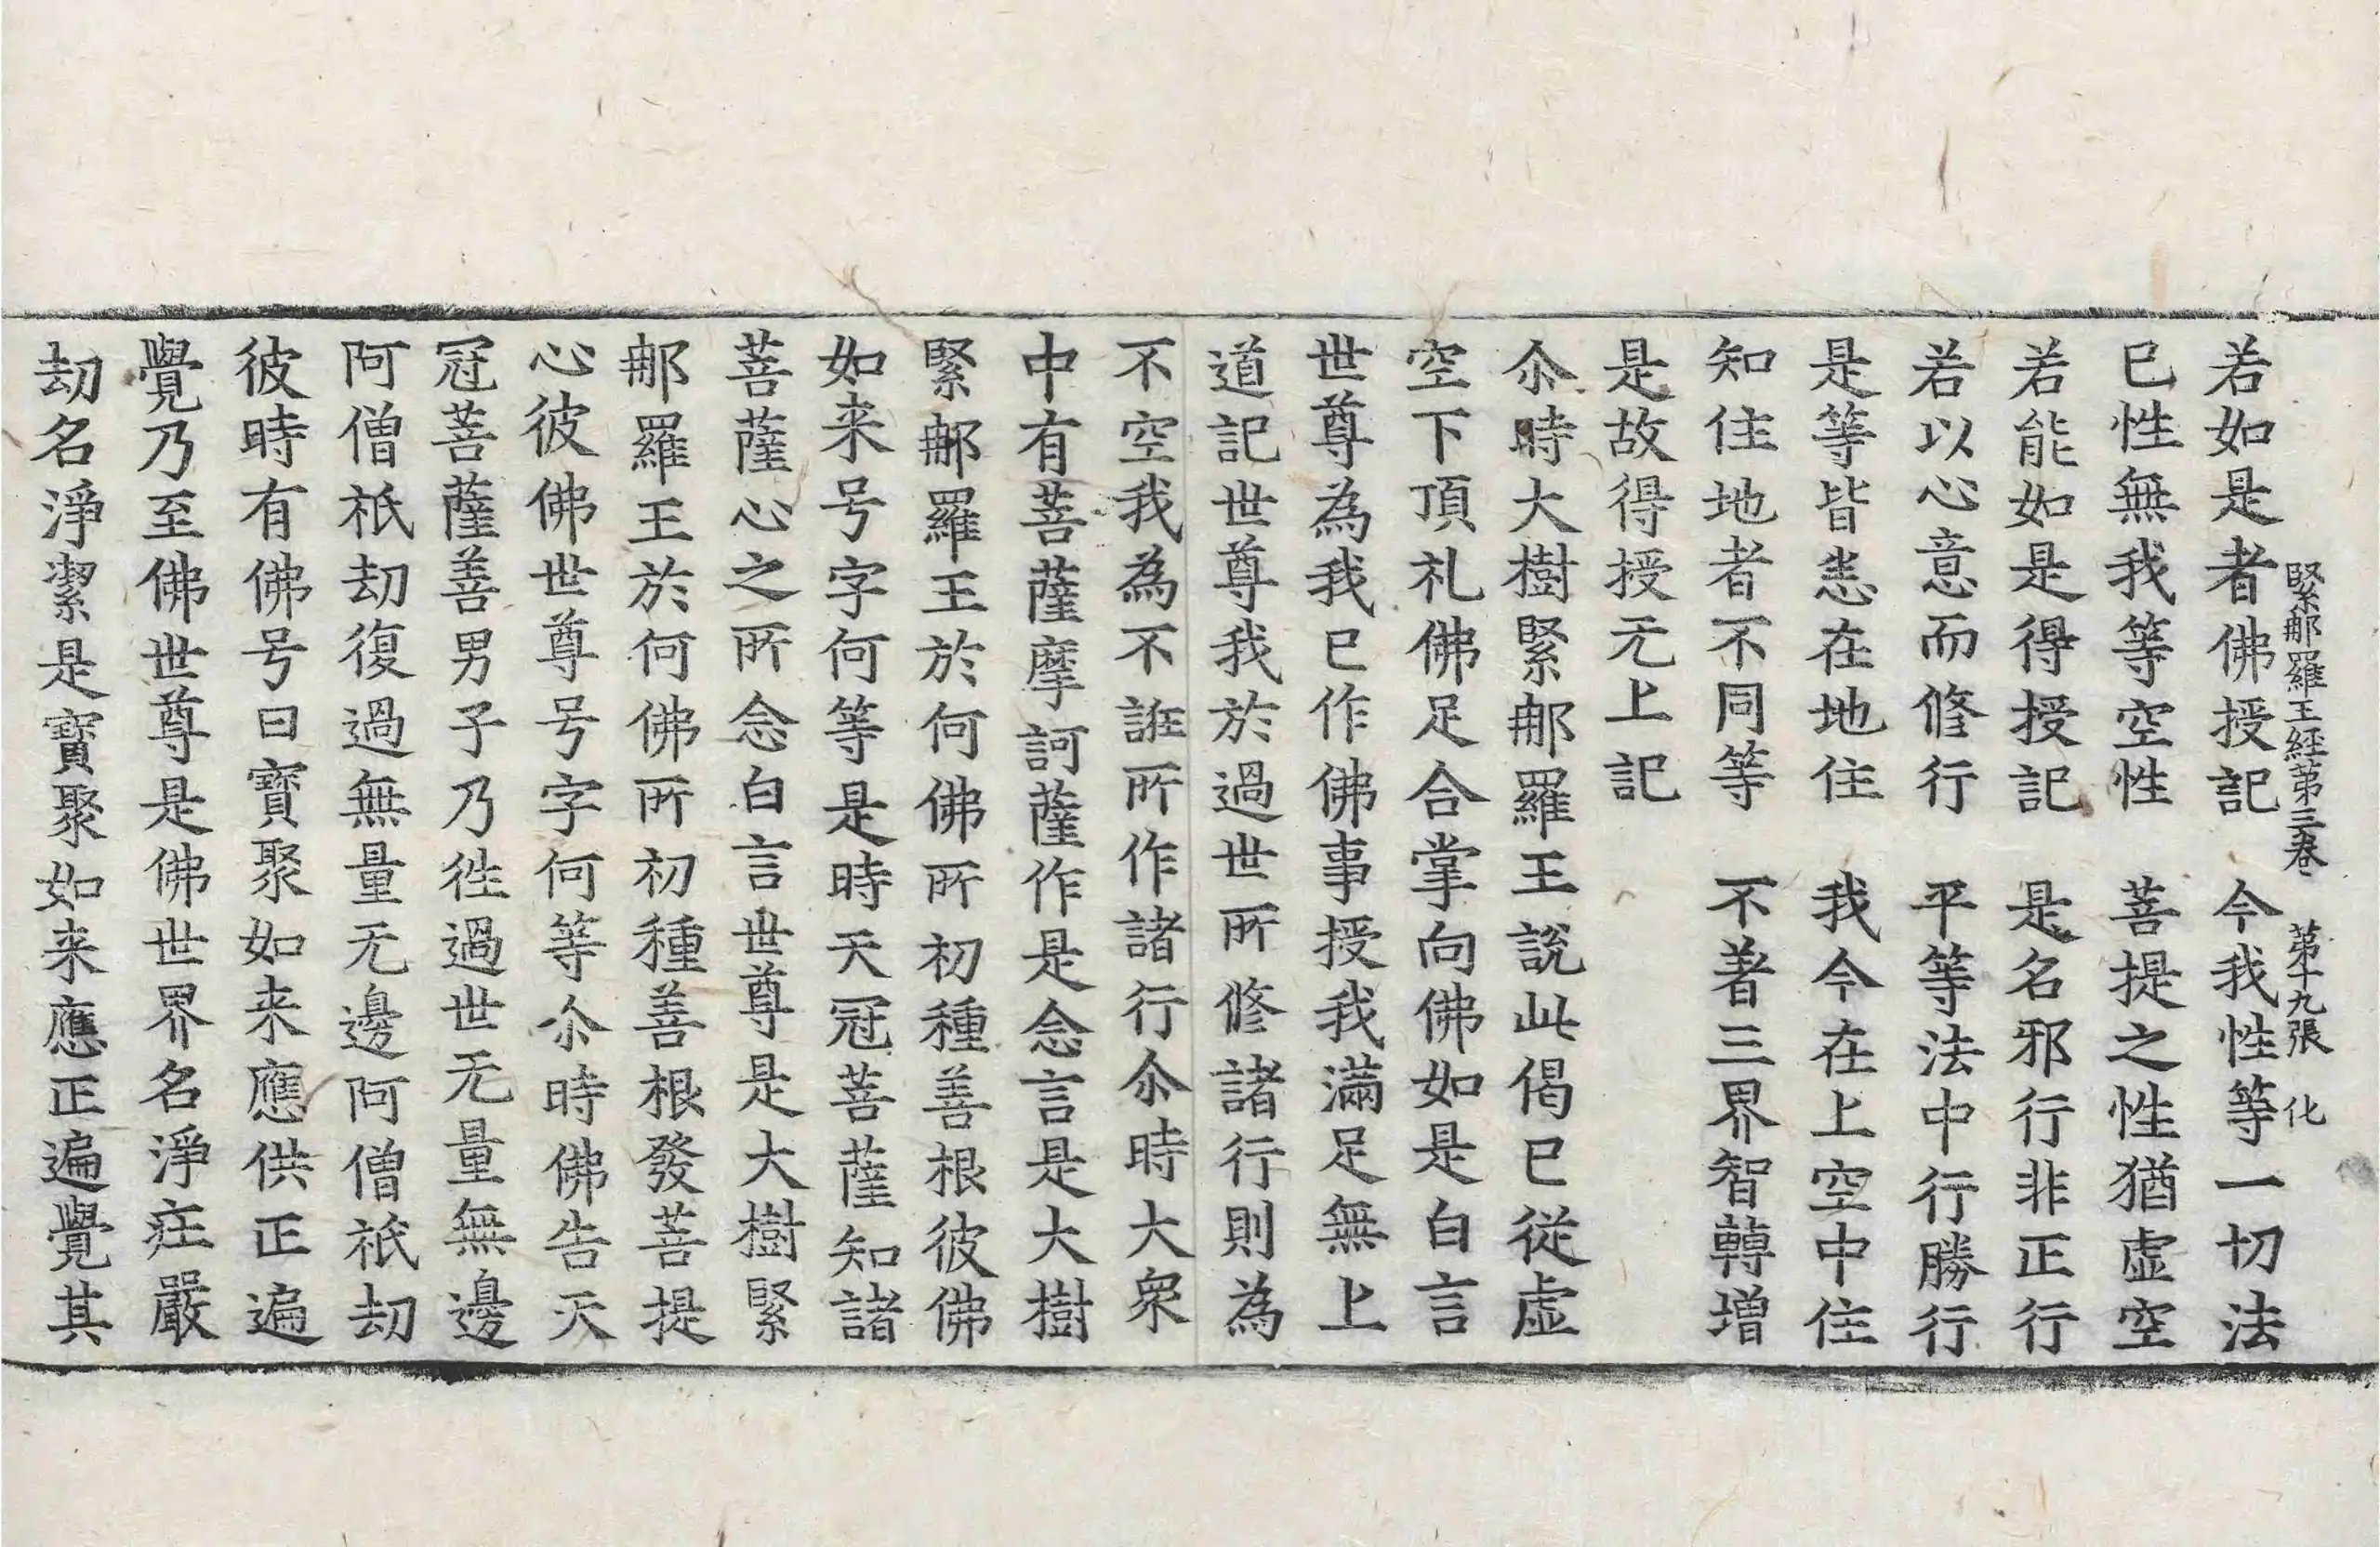 緊那羅王經第三卷 第十九張 化
若如是者佛授記 今我性等一切法
已性無我等空性 菩提之性猶虛空
若能如是得授記 是名邪行非正行
若以心意而修行 平等法中行勝行
是等皆悉在地住 我今在上空中住
知住地者不同等 不著三界智轉增
是故得授无上記
尒時大樹緊那羅王說此偈已從虛
空下頂礼佛足合掌向佛如是白言
世尊為我已作佛事授我滿足無上
道記世尊我於過世所修諸行則為
不空我為不誑所作諸行尒時大眾
中有菩薩摩訶薩作是念言是大樹
緊那羅王於何佛所初種善根彼佛
如来号字何等是時天冠菩薩知諸
菩薩心之所念白言世尊是大樹緊
那羅王於何佛所初種善根發菩提
心彼佛世尊号字何等尒時佛告天
冠菩薩善男子乃徃過世无量無邊
阿僧祇劫復過無量无邊阿僧祇劫
彼時有佛号曰寶聚如来應供正遍
覺乃至佛世尊是佛世界名淨庒嚴
劫名淨潔是寶聚如来應正遍覺其